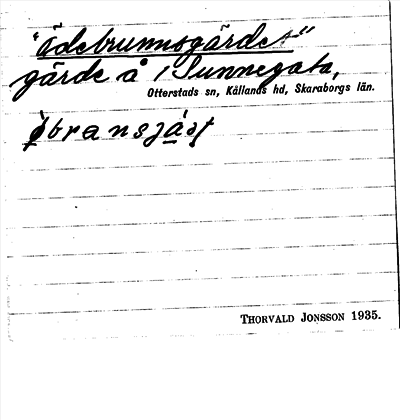 "Ädebrunnsgärdet"
gärde å 1 Sunnegata,
Otterstads sn, Kållands hd, Skaraborgs län.
THORVALD JONSSON 1935.